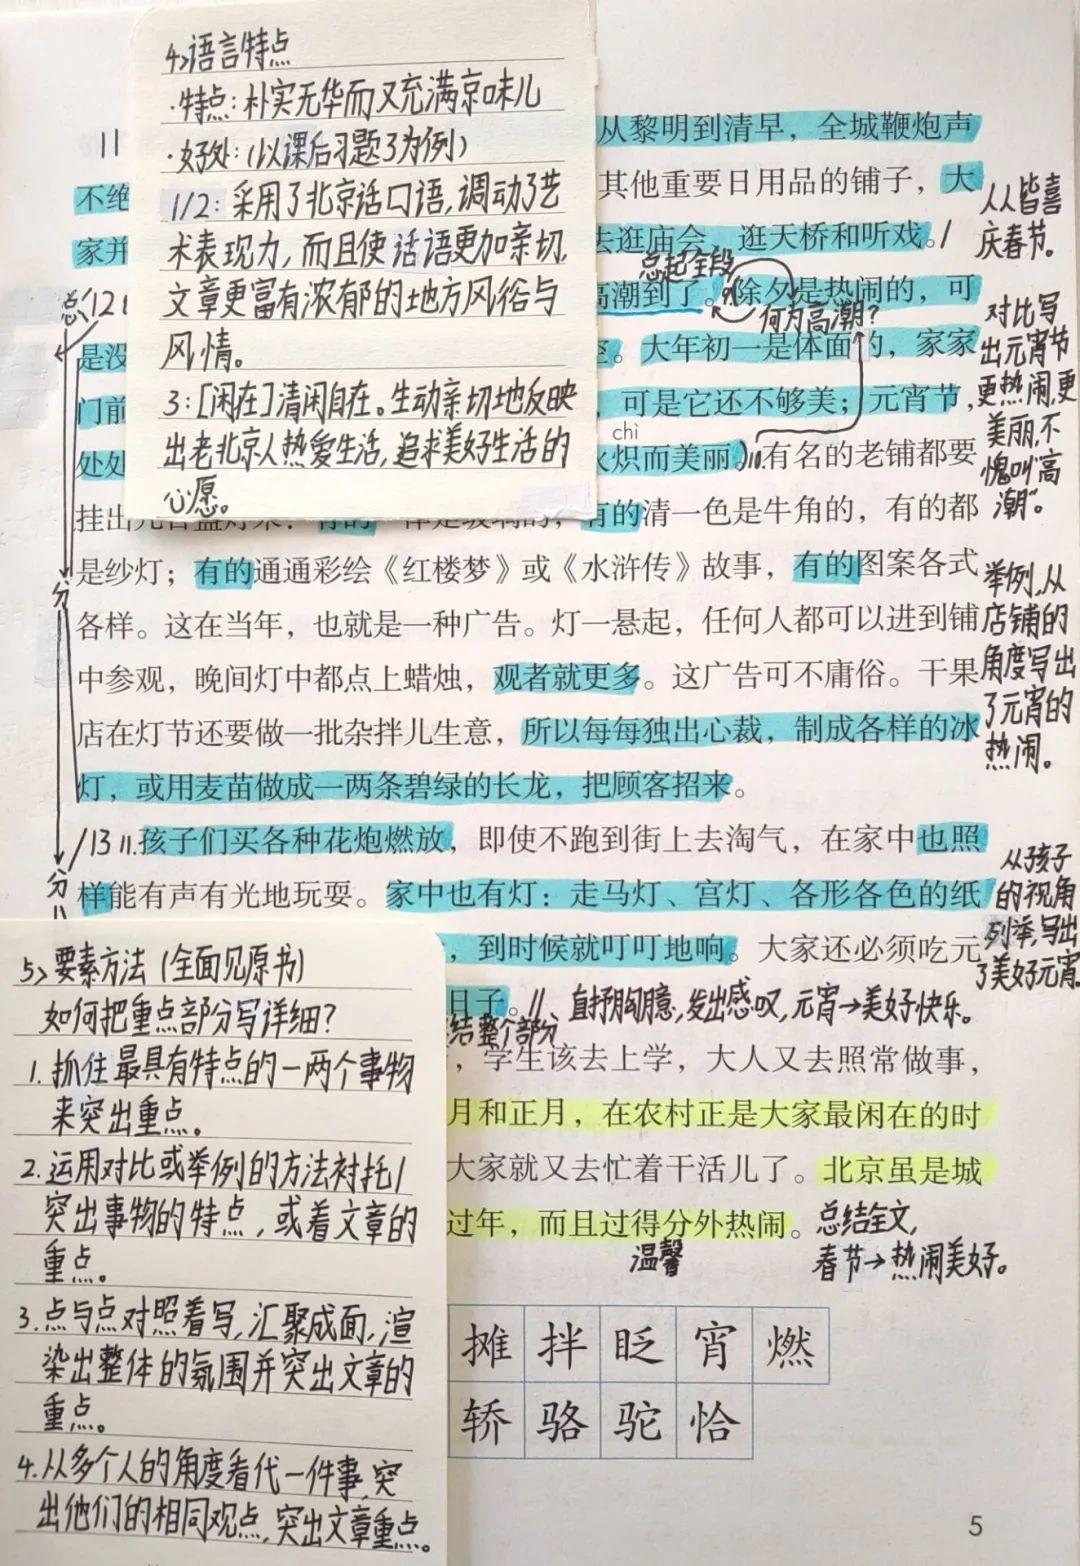 4>语言特点
·特点：朴实无华而又充满京味儿
·好处：（以课后习题3为例）
1/2：采用了北京话口语，调动了艺
术表现力，而且使话语更加亲切，
文章更富有浓郁的地方风俗与
风情。
3：[闲在]清闲自在。生动亲切地反映
出老北京人热爱生活，追求美好生活的
心愿。
11
从黎明到清早，全城鞭炮声
不绝
其他重要日用品的铺子，大
家并
去逛庙会，逛天桥和听戏。/
人人皆喜
庆春节。
总起全段
总/12
高潮到了。除夕是热闹的，可
何为高潮？
是没
。大年初一是体面的，家家
门前
，可是它还不够美；元宵节，
chì
处处
火炽而美丽。有名的老铺都要
对比写
出元宵节
更热闹，更
美丽，不
愧叫“高
潮”。
挂出几百盏灯来：有的一律是玻璃的，有的清一色是牛角的，有的都
是纱灯；有的通通彩绘《红楼梦》或《水浒传》故事，有的图案各式
分
各样。这在当年，也就是一种广告。灯一悬起，任何人都可以进到铺
中参观，晚间灯中都点上蜡烛，观者就更多。这广告可不庸俗。干果
店在灯节还要做一批杂拌儿生意，所以每每独出心裁，制成各样的冰
灯，或用麦苗做成一两条碧绿的长龙，把顾客招来。
举例，从
店铺的
角度写出
了元宵的
热闹。
/13 11.孩子们买各种花炮燃放，即使不跑到街上去淘气，在家中也照
分
样能有声有光地玩耍。家中也有灯：走马灯、宫灯、各形各色的纸
，到时候就叮叮地响。大家还必须吃元
从孩子
的视角
列举，写出
了美好元宵。
日子。//、直抒胸臆，发出感叹，元宵→美好快乐。
结整个部分
，学生该去上学，大人又去照常做事，
月和正月，在农村正是大家最闲在的时
大家就又去忙着干活儿了。北京虽是城
过年，而且过得分外热闹。
温馨
总结全文，
春节→热闹美好。
5>要素方法（全面见原书）
如何把重点部分写详细？
1.抓住最具有特点的一两个事物
来突出重点。
2.运用对比或举例的方法衬托/
突出事物的特点，或着文章的
重点。
3.点与点对照着写，汇聚成面，渲
染出整体的氛围并突出文章的
重点。
4.从多个人的角度看代一件事，突
出他们的相同观点，突出文章重点。
摊 拌 眨 宵 燃
轿 骆 驼 恰
5